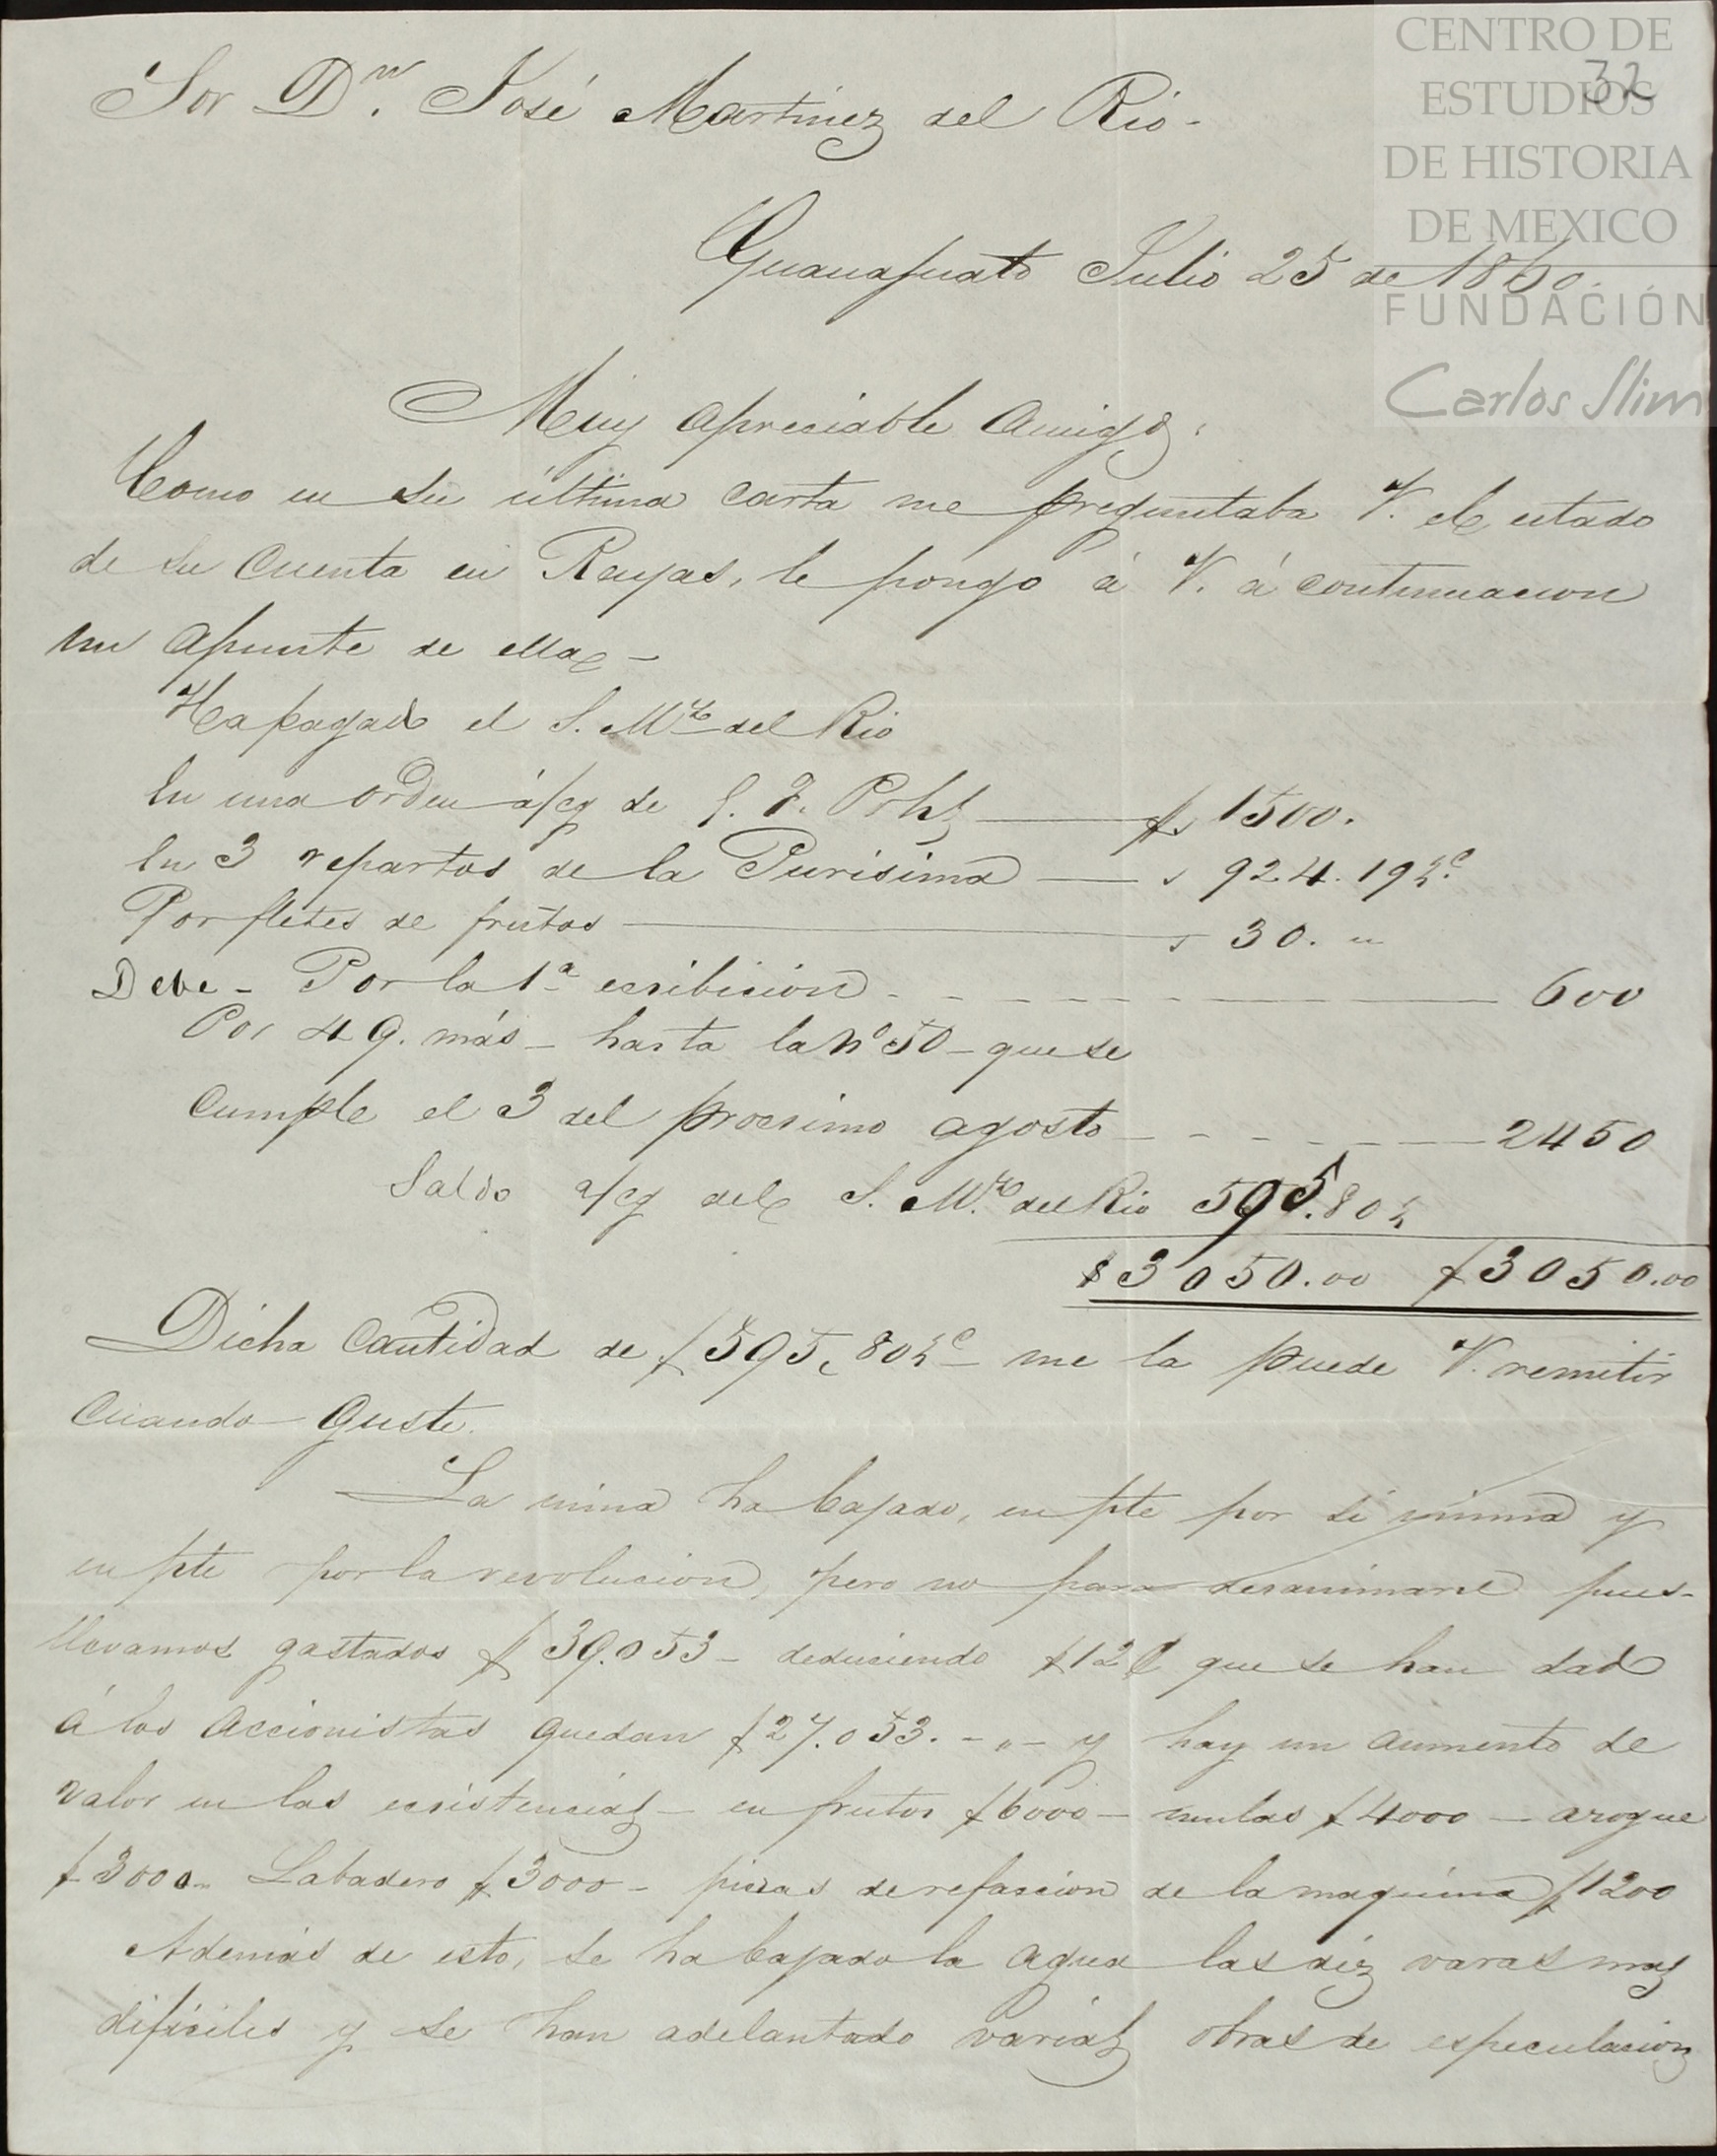 CENTRO DE
ESTUDIOS
DE HISTORIA
DE MEXICO
FUNDACIÓN
Carlos Slim
32
Sor Dn. José Martinez del Rio-
Guanajuato Julio 25 de 1860.
Muy apreciable amigo.
Como en su última carta me preguntaba V. el estado
de su cuenta en Rayas, le pongo á V. á continuacion
un apunte de ella -
Ha pagado el S. Mrz del Rio
En una orden á/cg de $ 1500.
En 3 repartos de la Purisima 924.19½c
Por fletes de frutos 30. "
Debe - Por la 1a ecsibicion 600
Por 49. más - hasta la No 50 - que se
cumple el 3 del procsimo agosto 2450
Saldo a/cg del S. Mrz del Rio 595.80½
$3050.00 $3050.00
Dicha cantidad de $595,80½c - me la puede V. remitir
cuando guste.
La mina ha bajado, en pte por si misma y
en pte por la revolucion, pero no para desanimarse pues-
llevamos gastados $ 39.053 - deduciendo $12 que se han dado
á los accionistas quedan $27.053. - " - y hay un aumento de
valor en las ecsistencias - en frutos $6000 - mulas $4000 - azogue
$3000 - Labadero $3000 - piezas de refaccion de la maquina $1200
Además de esto, se ha bajado la agua las diez varas mas
dificiles y se han adelantado varias obras de especulacion